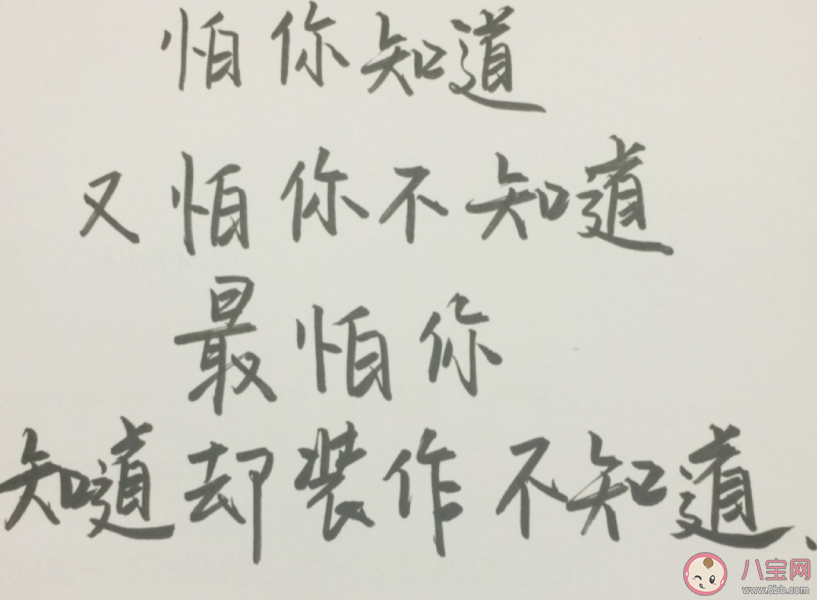 怕你知道
又怕你不知道
最怕你
知道却装作不知道、
八宝网
www.8bb.com